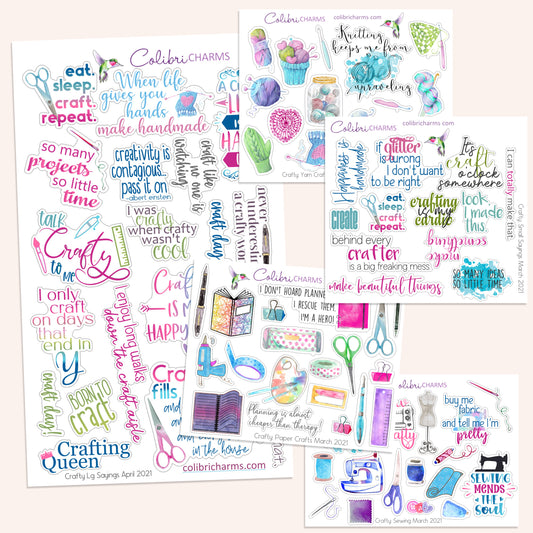 Colibri CHARMS
eat.
sleep.
craft.
repeat.
When life
gives you
hands
make handmade
so many
projects
so little
time
creativity is
contagious...
pass it on
- albert einsten
craft like
no one is
watching
TALK
Crafty
to me
I was
crafty
when crafty
wasn't
cool
craft day!
never
I only
craft
on days
that
end in
y
I enjoy long walks
down the craft aisle
craft day!
BORN TO
craft
Crafting
Queen
Crafty Lg Sayings April 2021
in the house
colibricharms.com
Colibri CHARMS
colibricharms.com
Knitting
keeps me from
unraveling
Crafty Yarn
Colibri CHARMS
Happiness is
handmade
if glitter
is wrong
I don't want
to be right
It's
craft
o'clock
somewhere
I can totally make that.
create
eat.
sleep.
craft.
repeat.
crafting
is my
cardio
look,
I made
this.
behind every
crafter
is a big freaking mess
make
something
SO MANY IDEAS
SO LITTLE TIME
make beautiful things
Crafty Small Sayings March 2021
Colibri CHARMS
I DON'T HOARD PLANNE
I RESCUE THEM,
I'M A HERO!
Planning is almost
cheaper than therapy!
Crafty Paper Crafts March 2021
Colibri CHARMS
buy me
fabric
and tell me I'm
pretty
SEWING
MENDS
THE
SOUL
Crafty Sewing March 2021